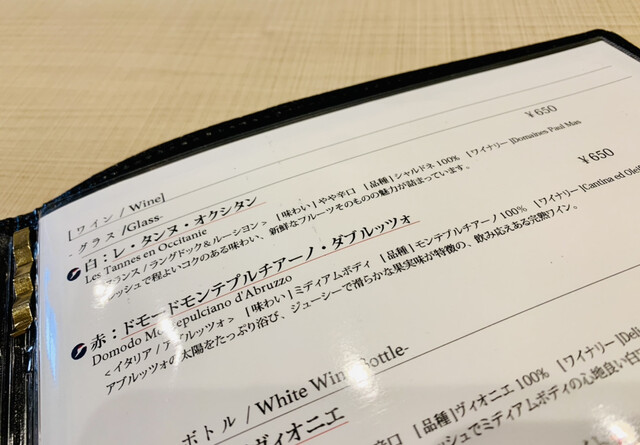 [ワイン / Wine]
- グラス /Glass-
白：レ・タンヌ・オクシタン ¥650
Les Tannes en Occitanie
＜フランス / ラングドック＆ルーシヨン＞ [味わい] やや辛口 [品種] シャルドネ 100% [ワイナリー]Domaines Paul Mas
フレッシュで程よいコクのある味わい、新鮮なフルーツそのものの魅力が詰まっています。
赤：ドモードモンテプルチアーノ・ダブルッツォ ¥650
Domodo Montepulciano d'Abruzzo
＜イタリア / アブルッツォ＞ [味わい] ミディアムボディ [品種] モンテプルチアーノ 100% [ワイナリー]Cantina ed
アブルッツォの太陽をたっぷり浴び、ジューシーで滑らかな果実味が特徴の、飲み応えある完熟ワイン。
ボトル / White Wine Bottle-
ヴィオニエ
辛口 [品種] ヴィオニエ 100% [ワイナリー]
でミディアムボディの心地良い白